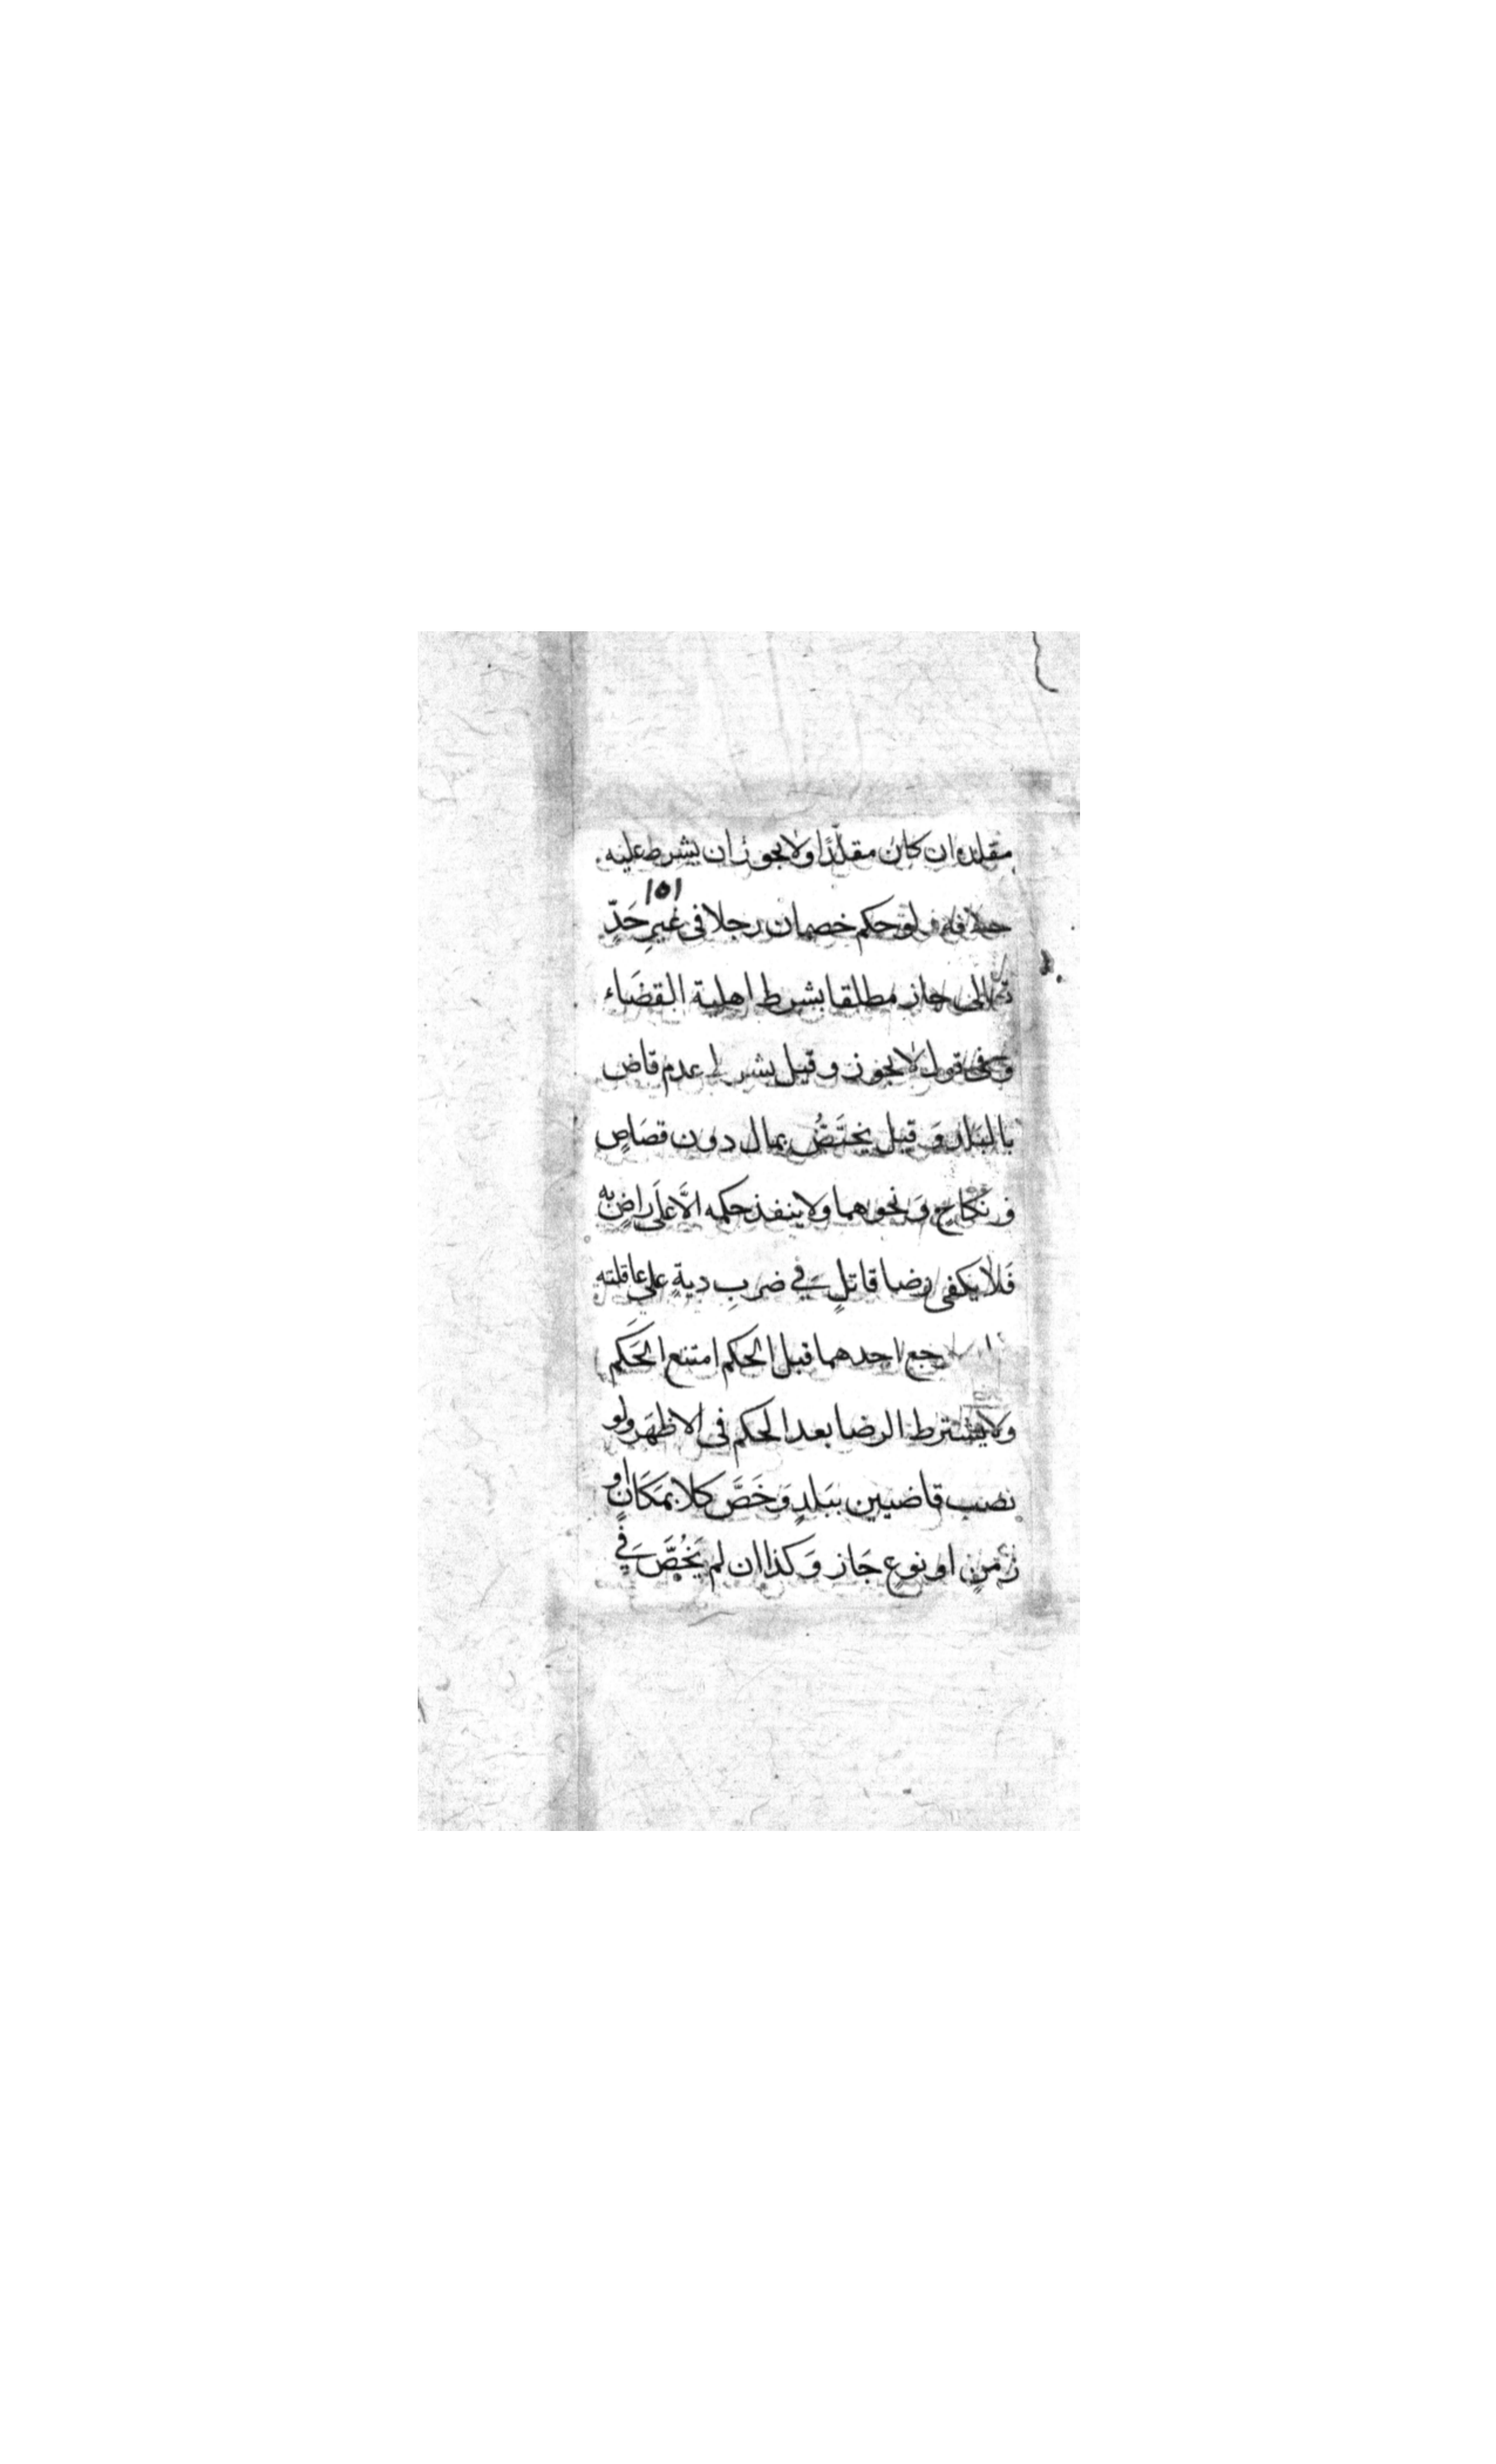 مقلده ان كان مقلدا ولا يجوز ان يشرط عليه
١٥١
خلافه لو حكم خصمان رجلا في غيرِ حَدّ
تعالى جاز مطلقا بشرط اهلية القضَاء
وفى قول لا يجوز وقيل بشرط عدم قاض
بالبَلد وَقيل يختَصُّ بمال دون قصَاصٍ
ونكَاحٍ وَنحوهما ولا ينفذ حكمه الَّا علَى راضٍ به
فَلا يكفى رضا قاتلٍ في ضربِ ديةٍ على عاقلته
رجع احدهما قبل الحكم امتنع الحَكم
ولا يشترط الرضا بعد الحكم فى الاظهَر ولو
نصب قاضيين ببَلدٍ وَخَصَّ كلا بمَكَانٍ او
زمنٍ او نوعٍ جَاز وَكذا ان لم يَخُصَّ في